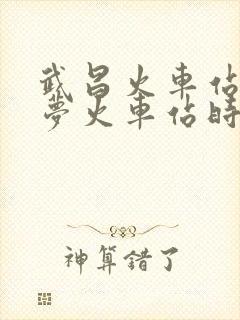 武昌火車佔
夢火車佔時
神算錯了